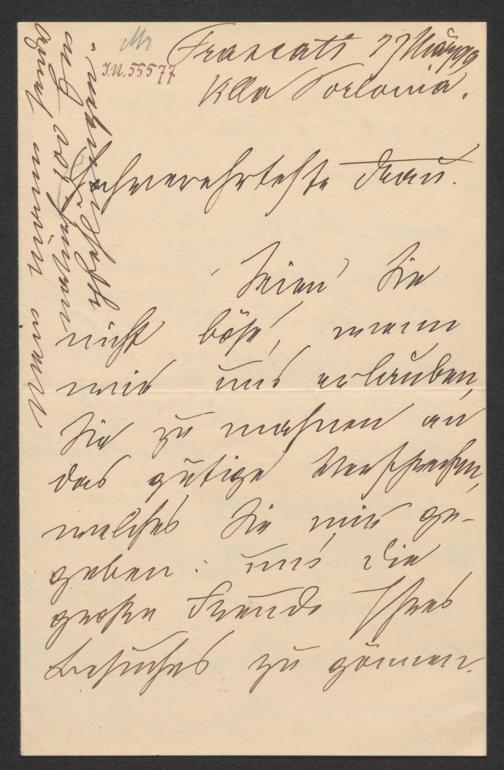 Mr
I.N. 55577
Frascati 27 März 99
Villa Torlonia.
Hochverehrteste Frau.
Seien Sie
nicht böse, wenn
wir uns erlauben,
Sie zu mahnen an
das gütige Versprechen,
welches Sie mir ge-
geben: uns die
große Freude Ihres
Besuches zu gönnen.
Mein Mann sendet